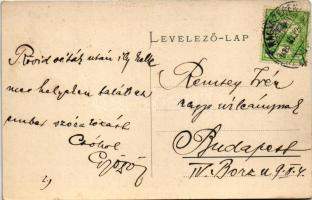 LEVELEZŐ-LAP
Rövid séták után ily kelle
mes helyeken találtam
ember szórakozást
Csókol
Győző
Remsey Irén
nagys úrleánynak
Budapest
IV. Borz u 9. I. 4.